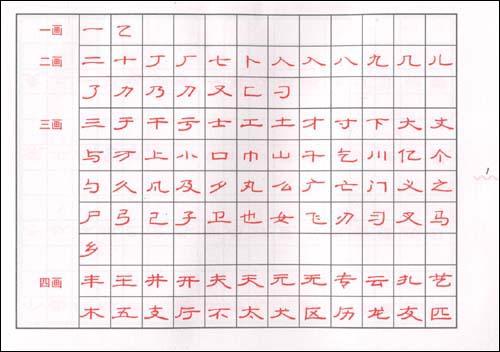 一画 一 乙
二画 二 十 丁 厂 七 卜 人 入 八 九 几 儿
了 力 乃 刀 又 匚 刁
三画 三 于 干 亏 士 工 土 才 寸 下 大 丈
与 万 上 小 口 巾 山 千 乞 川 亿 个
勺 久 凡 及 夕 丸 么 广 亡 门 义 之
尸 弓 己 子 卫 也 女 飞 刃 习 叉 马
乡
四画 丰 王 井 开 夫 天 元 无 专 云 扎 艺
木 五 支 厅 不 太 犬 区 历 龙 友 匹
1